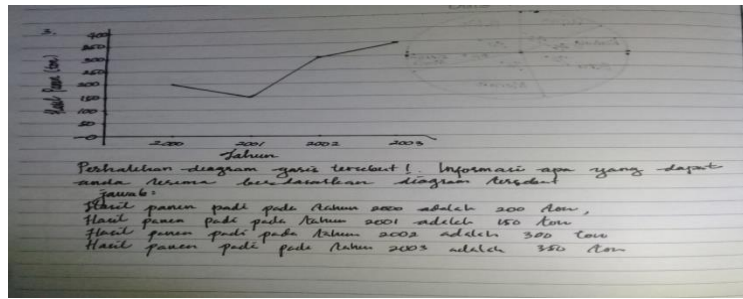 3.
Hasil Panen (ton)
400
350
300
250
200
150
100
50
0
2000 2001 2002 2003
Tahun
Perhatikan diagram garis tersebut! Informasi apa yang dapat
anda terima berdasarkan diagram tersebut
Jawab:
Hasil panen padi pada tahun 2000 adalah 200 ton,
Hasil panen padi pada tahun 2001 adalah 150 ton
Hasil panen padi pada tahun 2002 adalah 300 ton
Hasil panen padi pada tahun 2003 adalah 350 ton